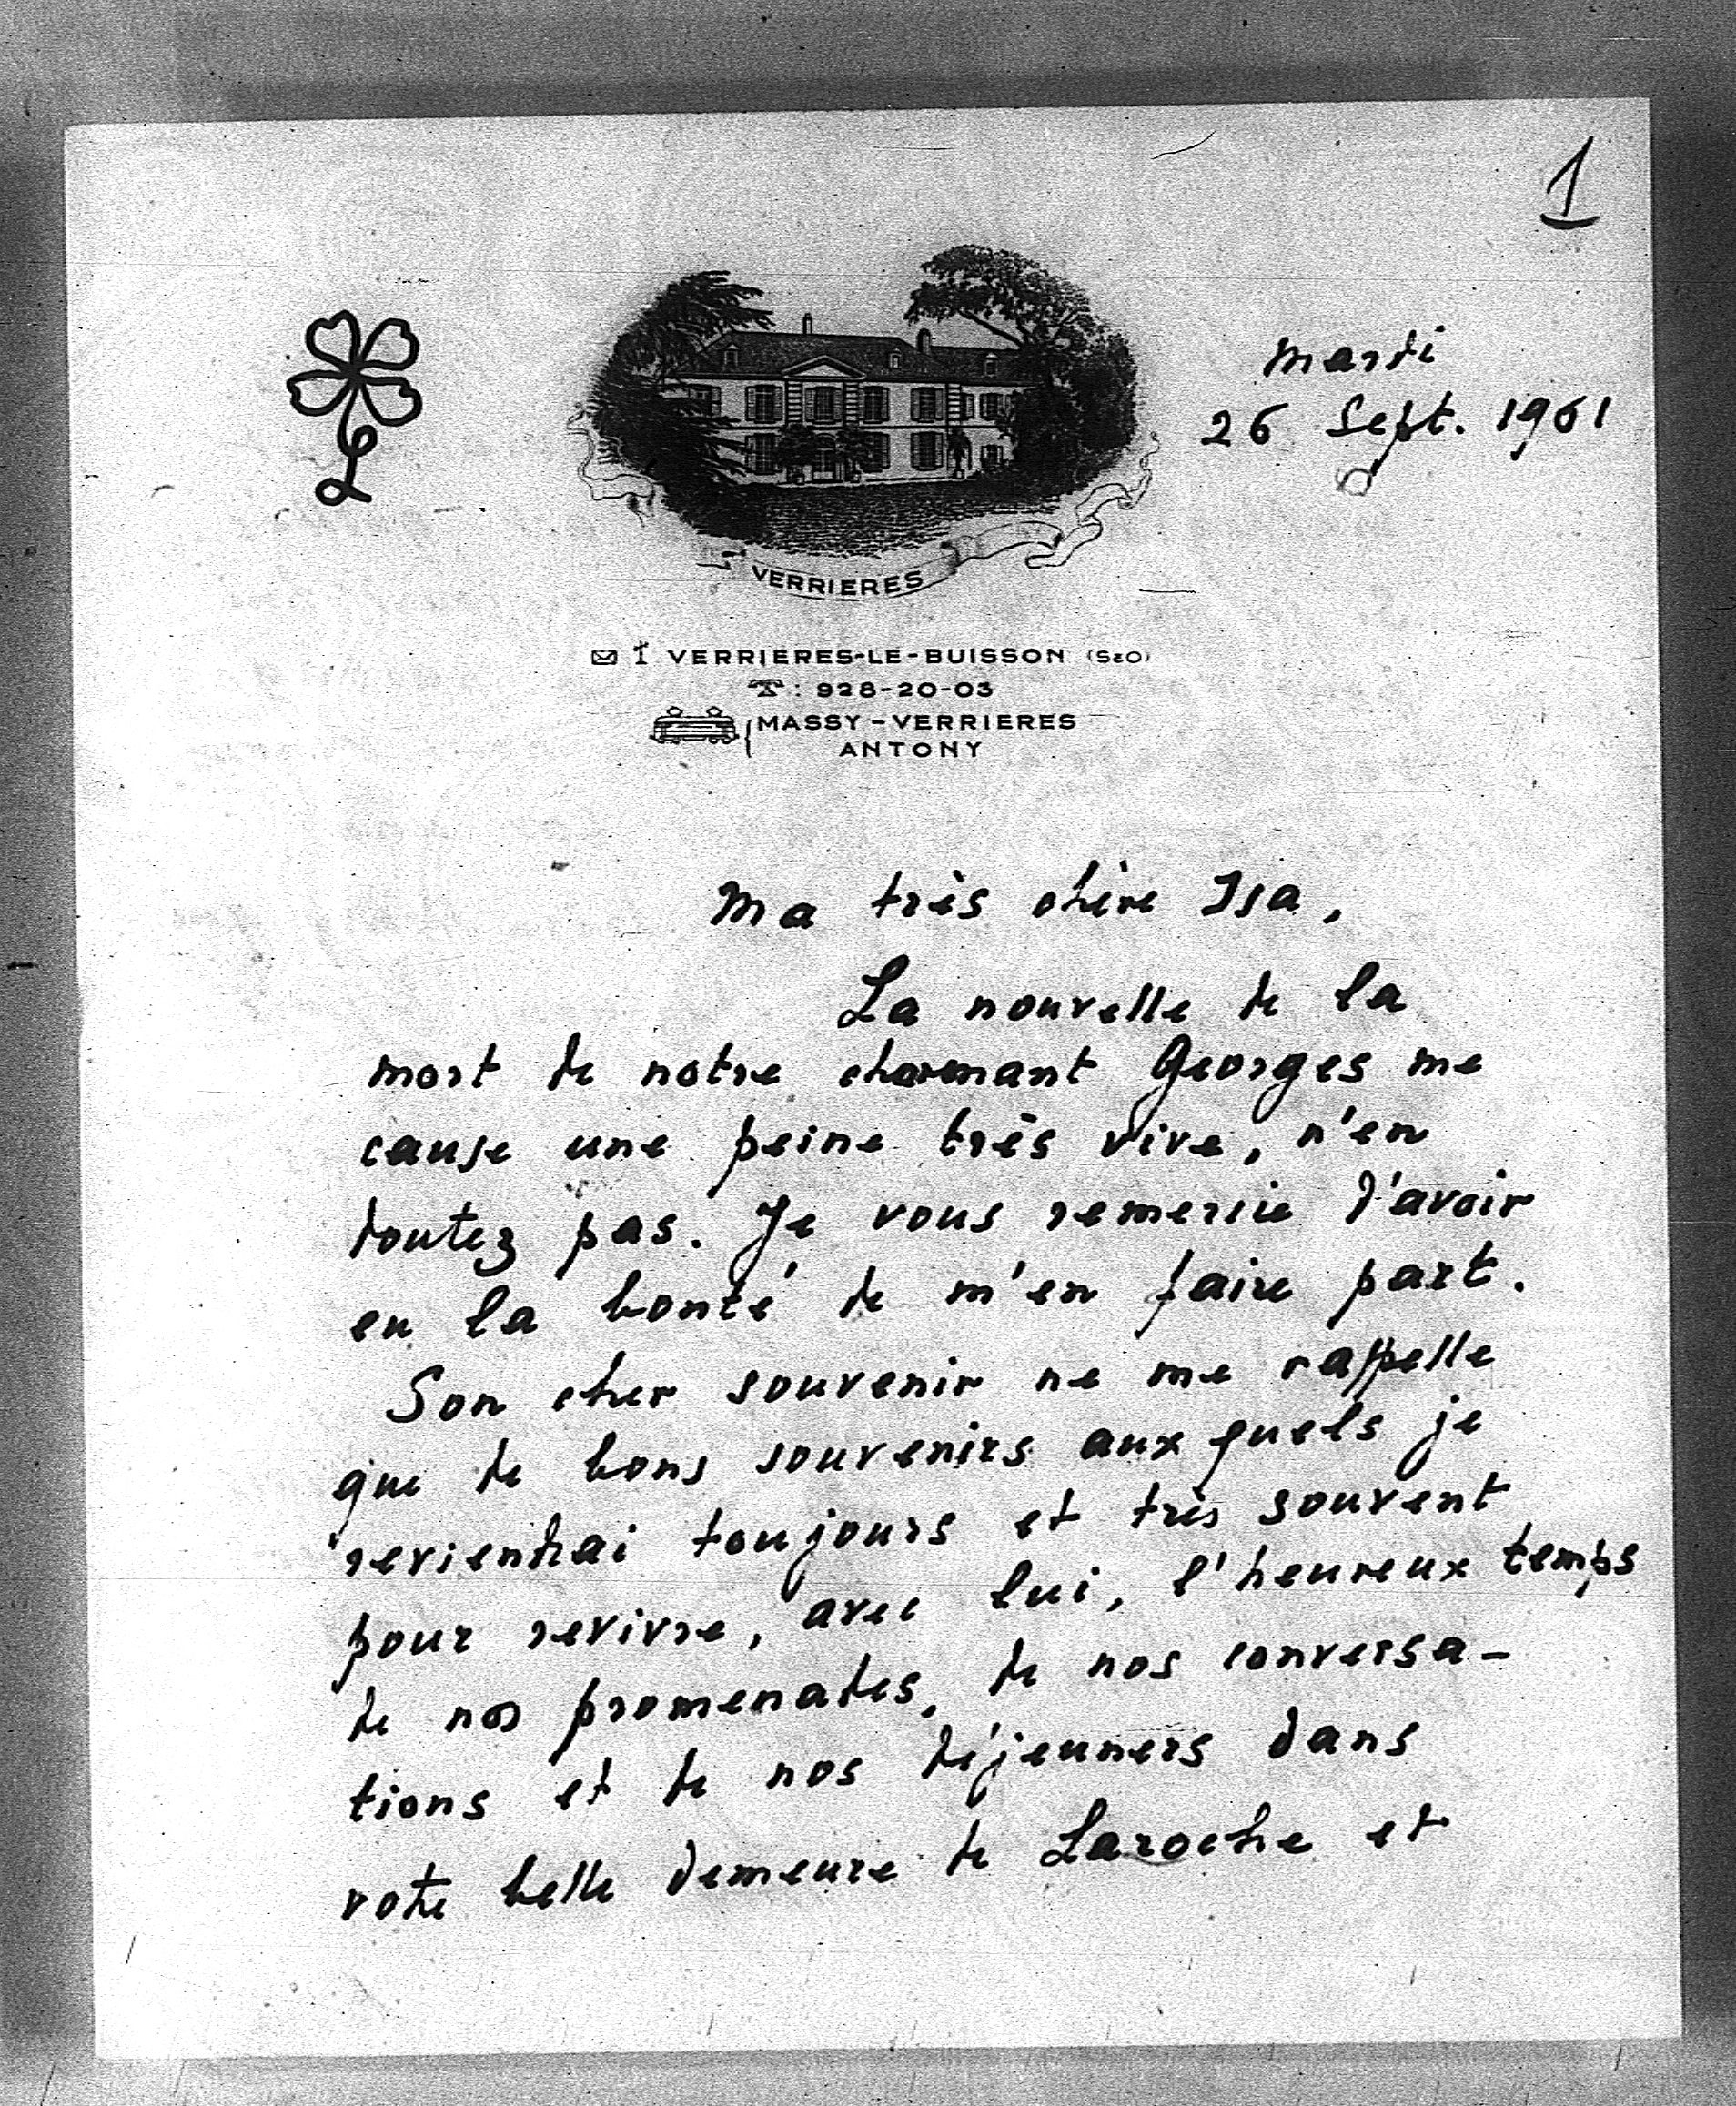 1
mardi
26 Sept. 1961
VERRIERES
VERRIERES-LE-BUISSON (S&O)
: 928-20-03
MASSY-VERRIERES
ANTONY
Ma très chère Isa,
La nouvelle de la
mort de notre charmant Georges me
cause une peine très vive, n'en
doutez pas. Je vous remercie d'avoir
eu la bonté de m'en faire part.
Son cher souvenir ne me rappelle
que de bons souvenirs auxquels je
reviendrai toujours et très souvent
pour revivre, avec lui, l'heureux temps
de nos promenades, de nos conversa-
tions et de nos déjeuners dans
votre belle demeure de Laroche et